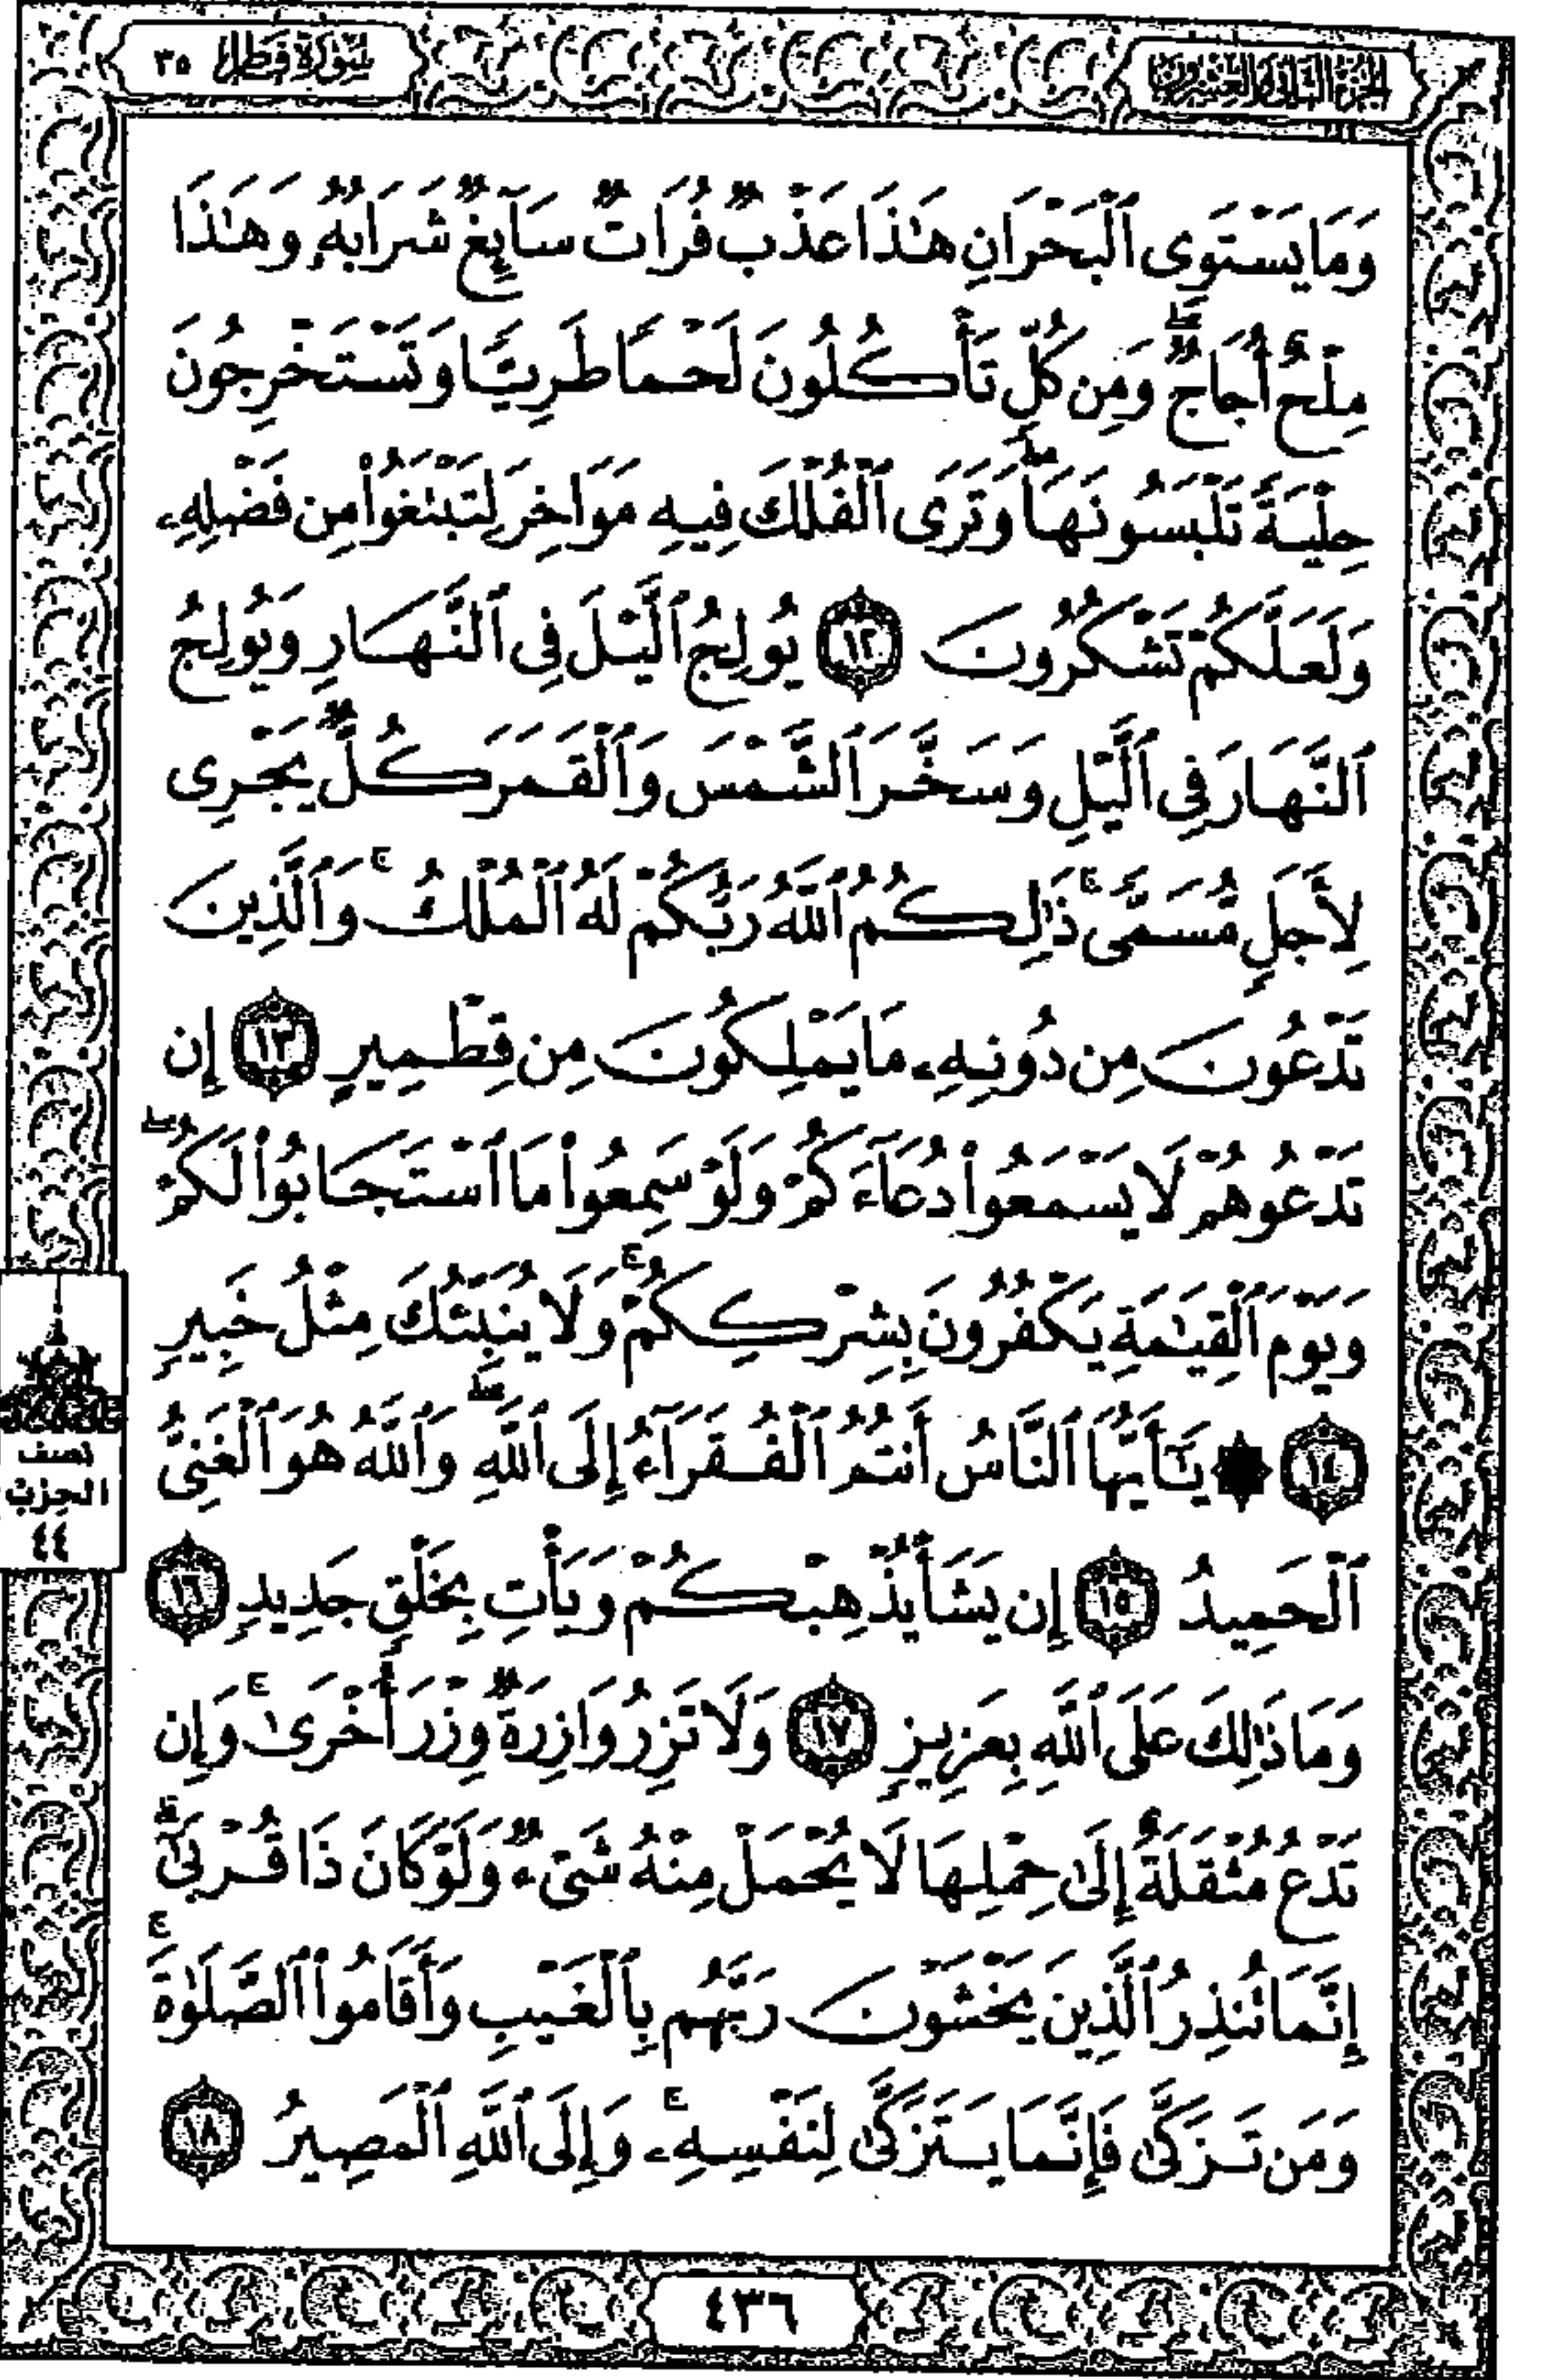 الجزء الثاني والعشرون
سورة فاطر ٣٥
وَمَا يَسْتَوِى ٱلْبَحْرَانِ هَٰذَا عَذْبٌ فُرَاتٌ سَآئِغٌ شَرَابُهُۥ وَهَٰذَا
مِلْحٌ أُجَاجٌ ۖ وَمِن كُلٍّ تَأْكُلُونَ لَحْمًا طَرِيًّا وَتَسْتَخْرِجُونَ
حِلْيَةً تَلْبَسُونَهَا ۖ وَتَرَى ٱلْفُلْكَ فِيهِ مَوَاخِرَ لِتَبْتَغُوا۟ مِن فَضْلِهِۦ
وَلَعَلَّكُمْ تَشْكُرُونَ ١٢ يُولِجُ ٱلَّيْلَ فِى ٱلنَّهَارِ وَيُولِجُ
ٱلنَّهَارَ فِى ٱلَّيْلِ وَسَخَّرَ ٱلشَّمْسَ وَٱلْقَمَرَ كُلٌّ يَجْرِى
لِأَجَلٍ مُّسَمًّى ۚ ذَٰلِكُمُ ٱللَّهُ رَبُّكُمْ لَهُ ٱلْمُلْكُ ۚ وَٱلَّذِينَ
تَدْعُونَ مِن دُونِهِۦ مَا يَمْلِكُونَ مِن قِطْمِيرٍ ١٣ إِن
تَدْعُوهُمْ لَا يَسْمَعُوا۟ دُعَآءَكُمْ وَلَوْ سَمِعُوا۟ مَا ٱسْتَجَابُوا۟ لَكُمْ ۖ
وَيَوْمَ ٱلْقِيَٰمَةِ يَكْفُرُونَ بِشِرْكِكُمْ ۚ وَلَا يُنَبِّئُكَ مِثْلُ خَبِيرٍ
١٤ ۞ يَٰٓأَيُّهَا ٱلنَّاسُ أَنتُمُ ٱلْفُقَرَآءُ إِلَى ٱللَّهِ ۖ وَٱللَّهُ هُوَ ٱلْغَنِىُّ
نصف
الحزب
٤٤
ٱلْحَمِيدُ ١٥ إِن يَشَأْ يُذْهِبْكُمْ وَيَأْتِ بِخَلْقٍ جَدِيدٍ ١٦
وَمَا ذَٰلِكَ عَلَى ٱللَّهِ بِعَزِيزٍ ١٧ وَلَا تَزِرُ وَازِرَةٌ وِزْرَ أُخْرَىٰ ۚ وَإِن
تَدْعُ مُثْقَلَةٌ إِلَىٰ حِمْلِهَا لَا يُحْمَلْ مِنْهُ شَىْءٌ وَلَوْ كَانَ ذَا قُرْبَىٰٓ ۗ
إِنَّمَا تُنذِرُ ٱلَّذِينَ يَخْشَوْنَ رَبَّهُم بِٱلْغَيْبِ وَأَقَامُوا۟ ٱلصَّلَوٰةَ ۚ
وَمَن تَزَكَّىٰ فَإِنَّمَا يَتَزَكَّىٰ لِنَفْسِهِۦ ۚ وَإِلَى ٱللَّهِ ٱلْمَصِيرُ ١٨
٤٣٦